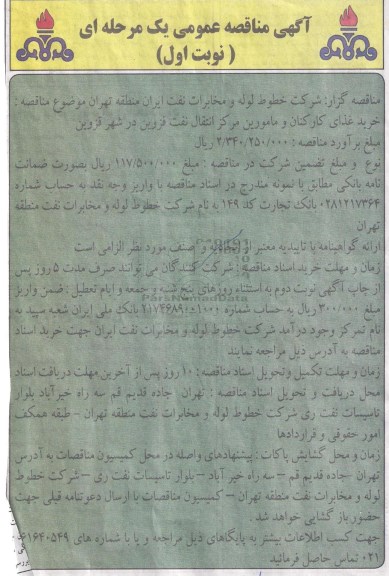 آگهی مناقصه عمومی یک مرحله ای
( نوبت اول)
مناقصه گزار: شرکت خطوط لوله و مخابرات نفت ایران منطقه تهران موضوع مناقصه :
خرید غذای کارکنان و مامورین مرکز انتقال نفت قزوین در شهر قزوین
مبلغ برآورد مناقصه : ۲/۳۴۰/۲۵۰/۰۰۰ ریال
نوع و مبلغ تضمین شرکت در مناقصه : مبلغ ۱۱۷/۵۰۰/۰۰۰ ریال بصورت ضمانت
نامه بانکی مطابق با نمونه مندرج در اسناد مناقصه یا واریز وجه نقد به حساب شماره
۰۲۸۱۲۱۷۳۶۴ بانک تجارت کد ۱۴۹ به نام شرکت خطوط لوله و مخابرات نفت منطقه
تهران
ارائه گواهینامه یا تاییدیه معتبر از اتحادیه و صنف مورد نظر الزامی است
زمان و مهلت خرید اسناد مناقصه : شرکت کنندگان می توانند ظرف مدت ۵ روز پس
از چاپ آگهی نوبت دوم به استثناء روزهای پنج شنبه و جمعه و ایام تعطیل ، ضمن واریز
مبلغ ۳۰۰/۰۰۰ ریال به حساب شماره بانک ملی ایران شعبه سپید به
نام تمرکز وجوه درآمد شرکت خطوط لوله و مخابرات نفت ایران جهت خرید اسناد
مناقصه به آدرس ذیل مراجعه نمایند
زمان و مهلت تکمیل وتحویل اسناد مناقصه : ۱۰ روز پس از آخرین مهلت دریافت اسناد
محل دریافت و تحویل اسناد مناقصه : تهران جاده قدیم قم سه راه خیرآباد بلوار
تاسیسات نفت ری شرکت خطوط لوله و مخابرات نفت منطقه تهران - طبقه همکف
امور حقوقی و قراردادها
زمان و محل گشایش پاکات : پیشنهادهای واصله در محل کمیسیون مناقصات به آدرس
تهران جاده قدیم قم – سه راه خیر آباد – بلوار تاسیسات نفت ری – شرکت خطوط
لوله و مخابرات نفت منطقه تهران – کمیسیون مناقصات با ارسال دعوتنامه قبلی جهت
حضور باز گشایی خواهد شد
جهت کسب اطلاعات بیشتر به پایگاهای ذیل مراجعه و یا با شماره های ۶۱۶۴۰۵۴۹-
۰۲۱ تماس حاصل فرمائید
ParsNamadData